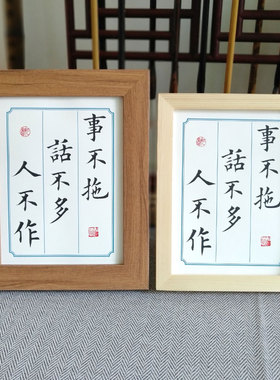 事不拖
話不多
人不作
事不拖
話不多
人不作